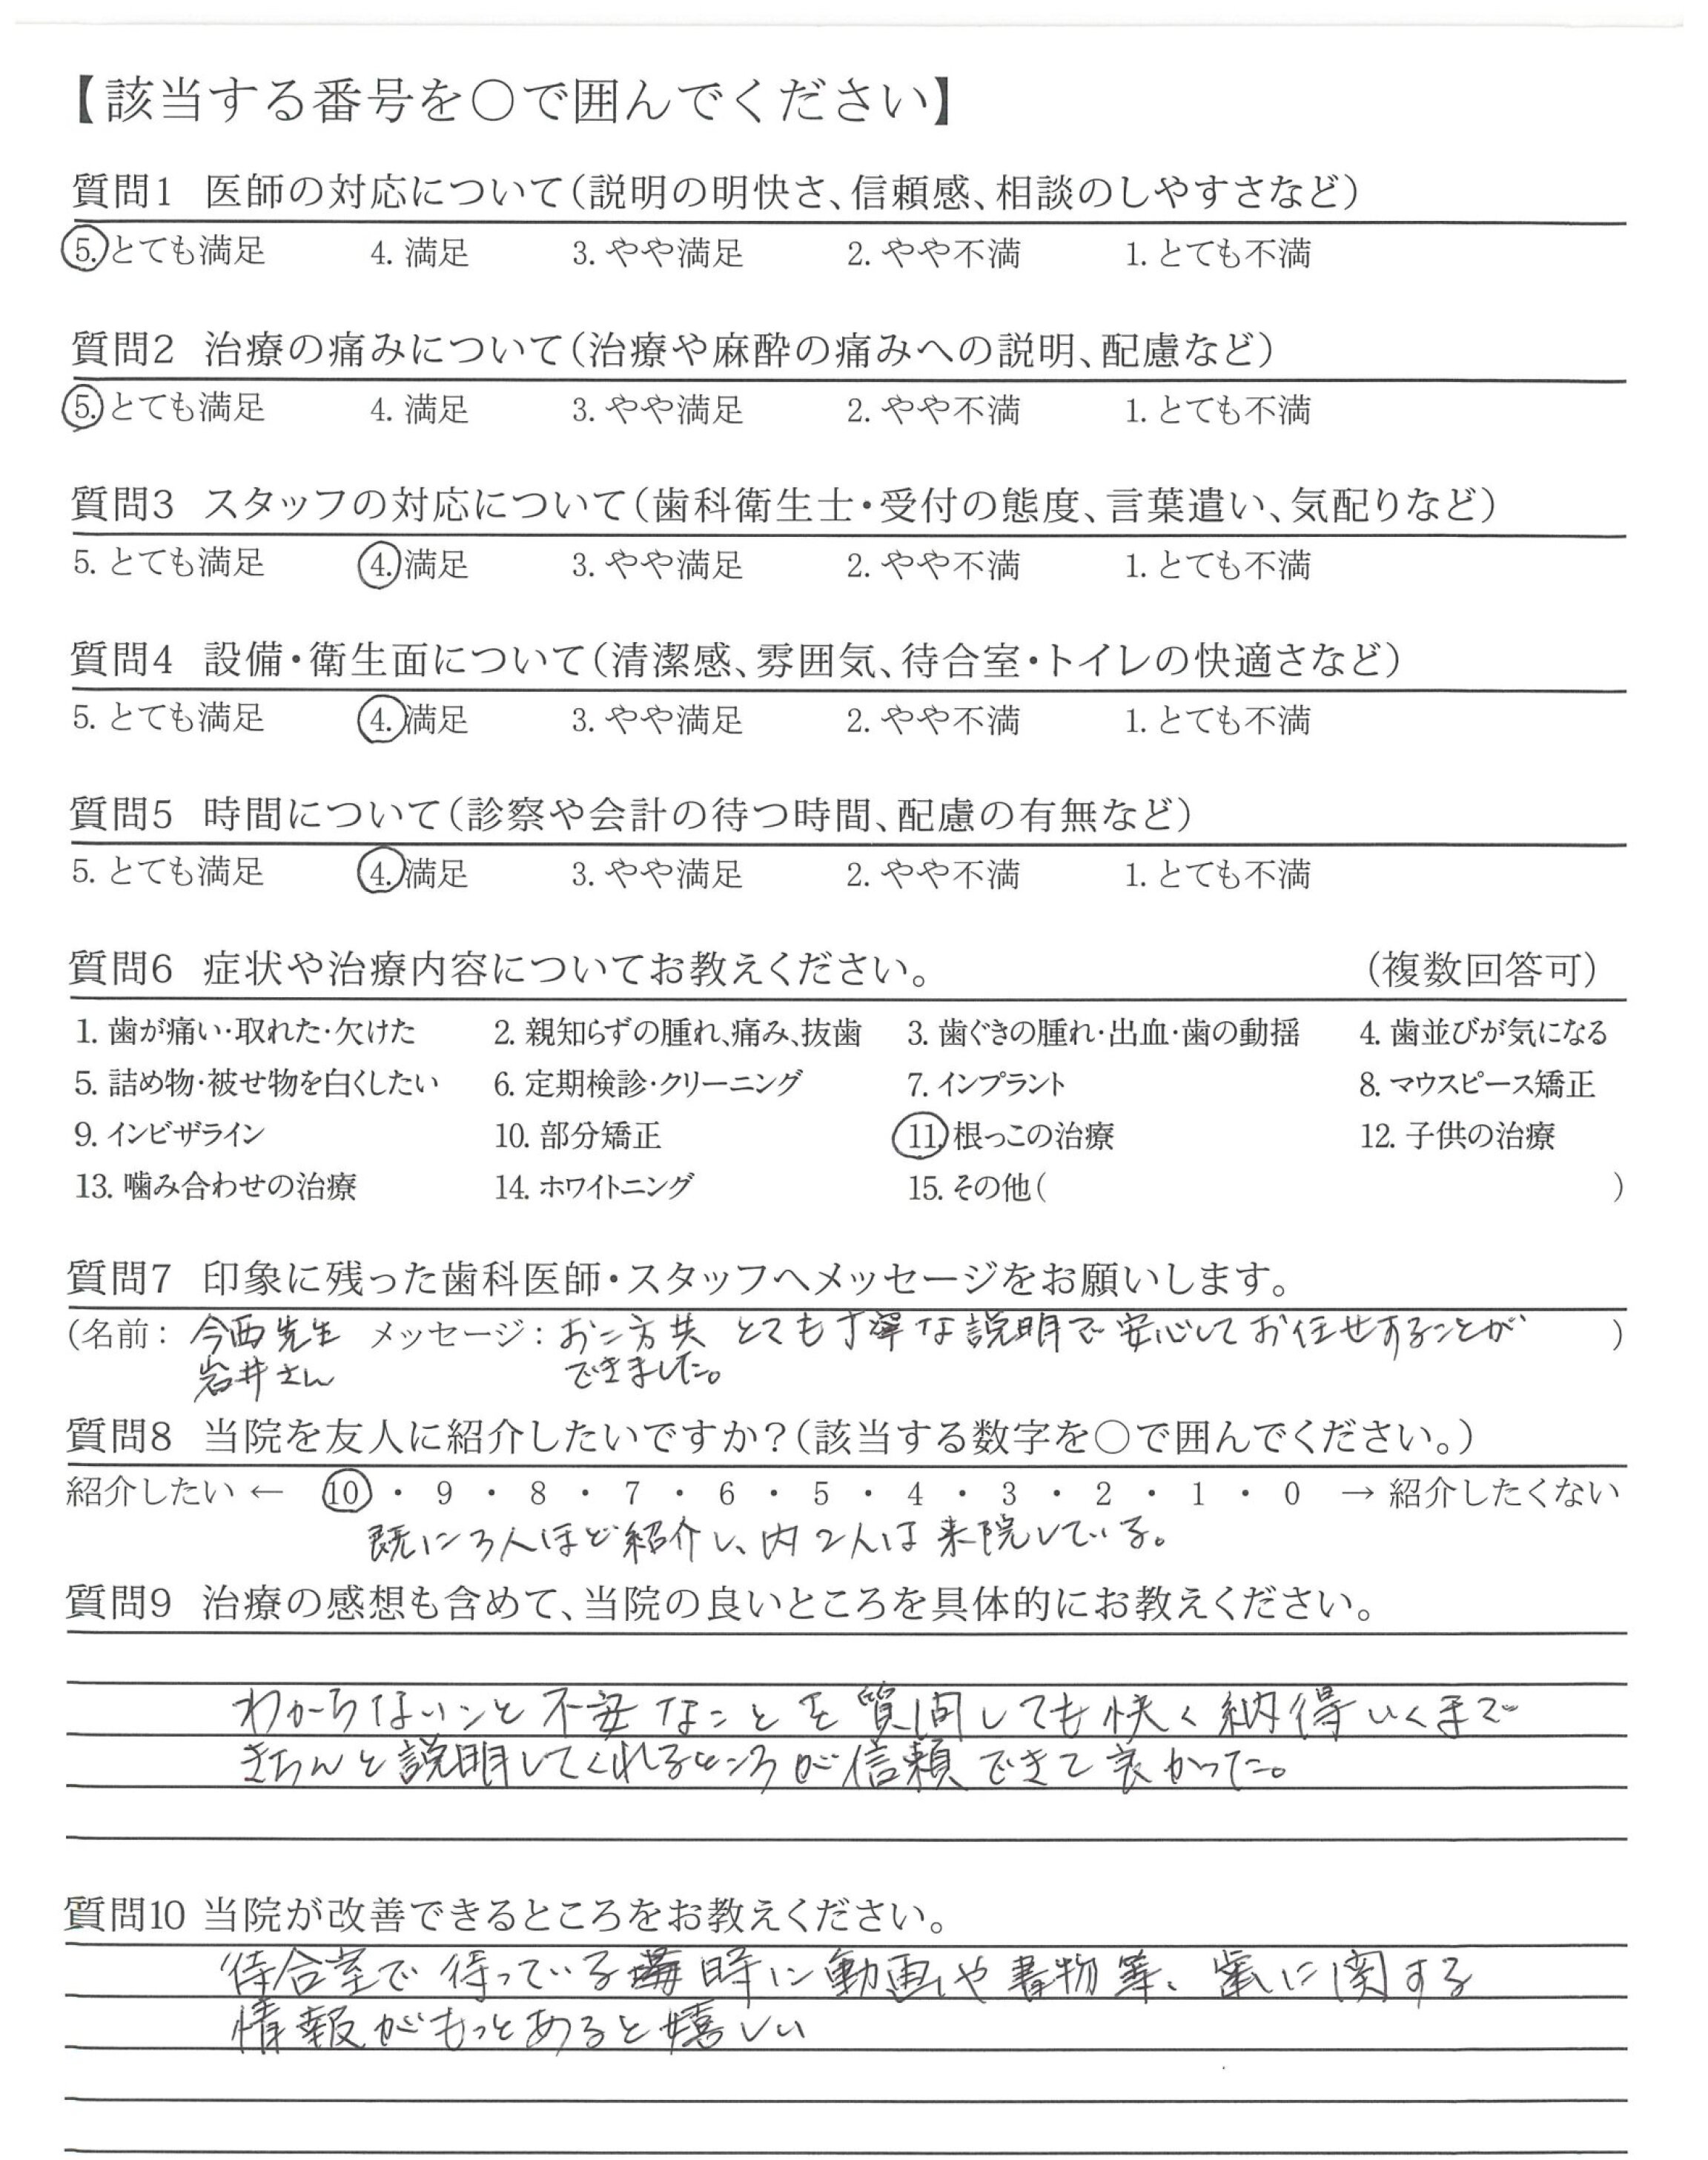 【該当する番号を〇で囲んでください】
質問1 医師の対応について(説明の明快さ、信頼感、相談のしやすさなど)
5. とても満足 4. 満足 3. やや満足 2. やや不満 1. とても不満
質問2 治療の痛みについて(治療や麻酔の痛みへの説明、配慮など)
5. とても満足 4. 満足 3. やや満足 2. やや不満 1. とても不満
質問3 スタッフの対応について(歯科衛生士・受付の態度、言葉遣い、気配りなど)
5. とても満足 4. 満足 3. やや満足 2. やや不満 1. とても不満
質問4 設備・衛生面について(清潔感、雰囲気、待合室・トイレの快適さなど)
5. とても満足 4. 満足 3. やや満足 2. やや不満 1. とても不満
質問5 時間について(診察や会計の待つ時間、配慮の有無など)
5. とても満足 4. 満足 3. やや満足 2. やや不満 1. とても不満
質問6 症状や治療内容についてお教えください。 (複数回答可)
1. 歯が痛い・取れた・欠けた 2. 親知らずの腫れ、痛み、抜歯 3. 歯ぐきの腫れ・出血・歯の動揺 4. 歯並びが気になる
5. 詰め物・被せ物を白くしたい 6. 定期検診・クリーニング 7. インプラント 8. マウスピース矯正
9. インビザライン 10. 部分矯正 11. 根っこの治療 12. 子供の治療
13. 噛み合わせの治療 14. ホワイトニング 15. その他( )
質問7 印象に残った歯科医師・スタッフへメッセージをお願いします。
(名前: 今西先生 メッセージ: お二方共 とても丁寧な説明で安心してお任せすることが )
岩井さん できました。
質問8 当院を友人に紹介したいですか?(該当する数字を〇で囲んでください。)
紹介したい ← 10 ・ 9 ・ 8 ・ 7 ・ 6 ・ 5 ・ 4 ・ 3 ・ 2 ・ 1 ・ 0 → 紹介したくない
既に3人ほど紹介し、内2人は来院している。
質問9 治療の感想も含めて、当院の良いところを具体的にお教えください。
わからないこと不安なことを質問しても快く納得いくまで
きちんと説明してくれるところが信頼できて良かった。
質問10 当院が改善できるところをお教えください。
待合室で待っている時に動画や書物等、歯に関する
情報がもっとあると嬉しい